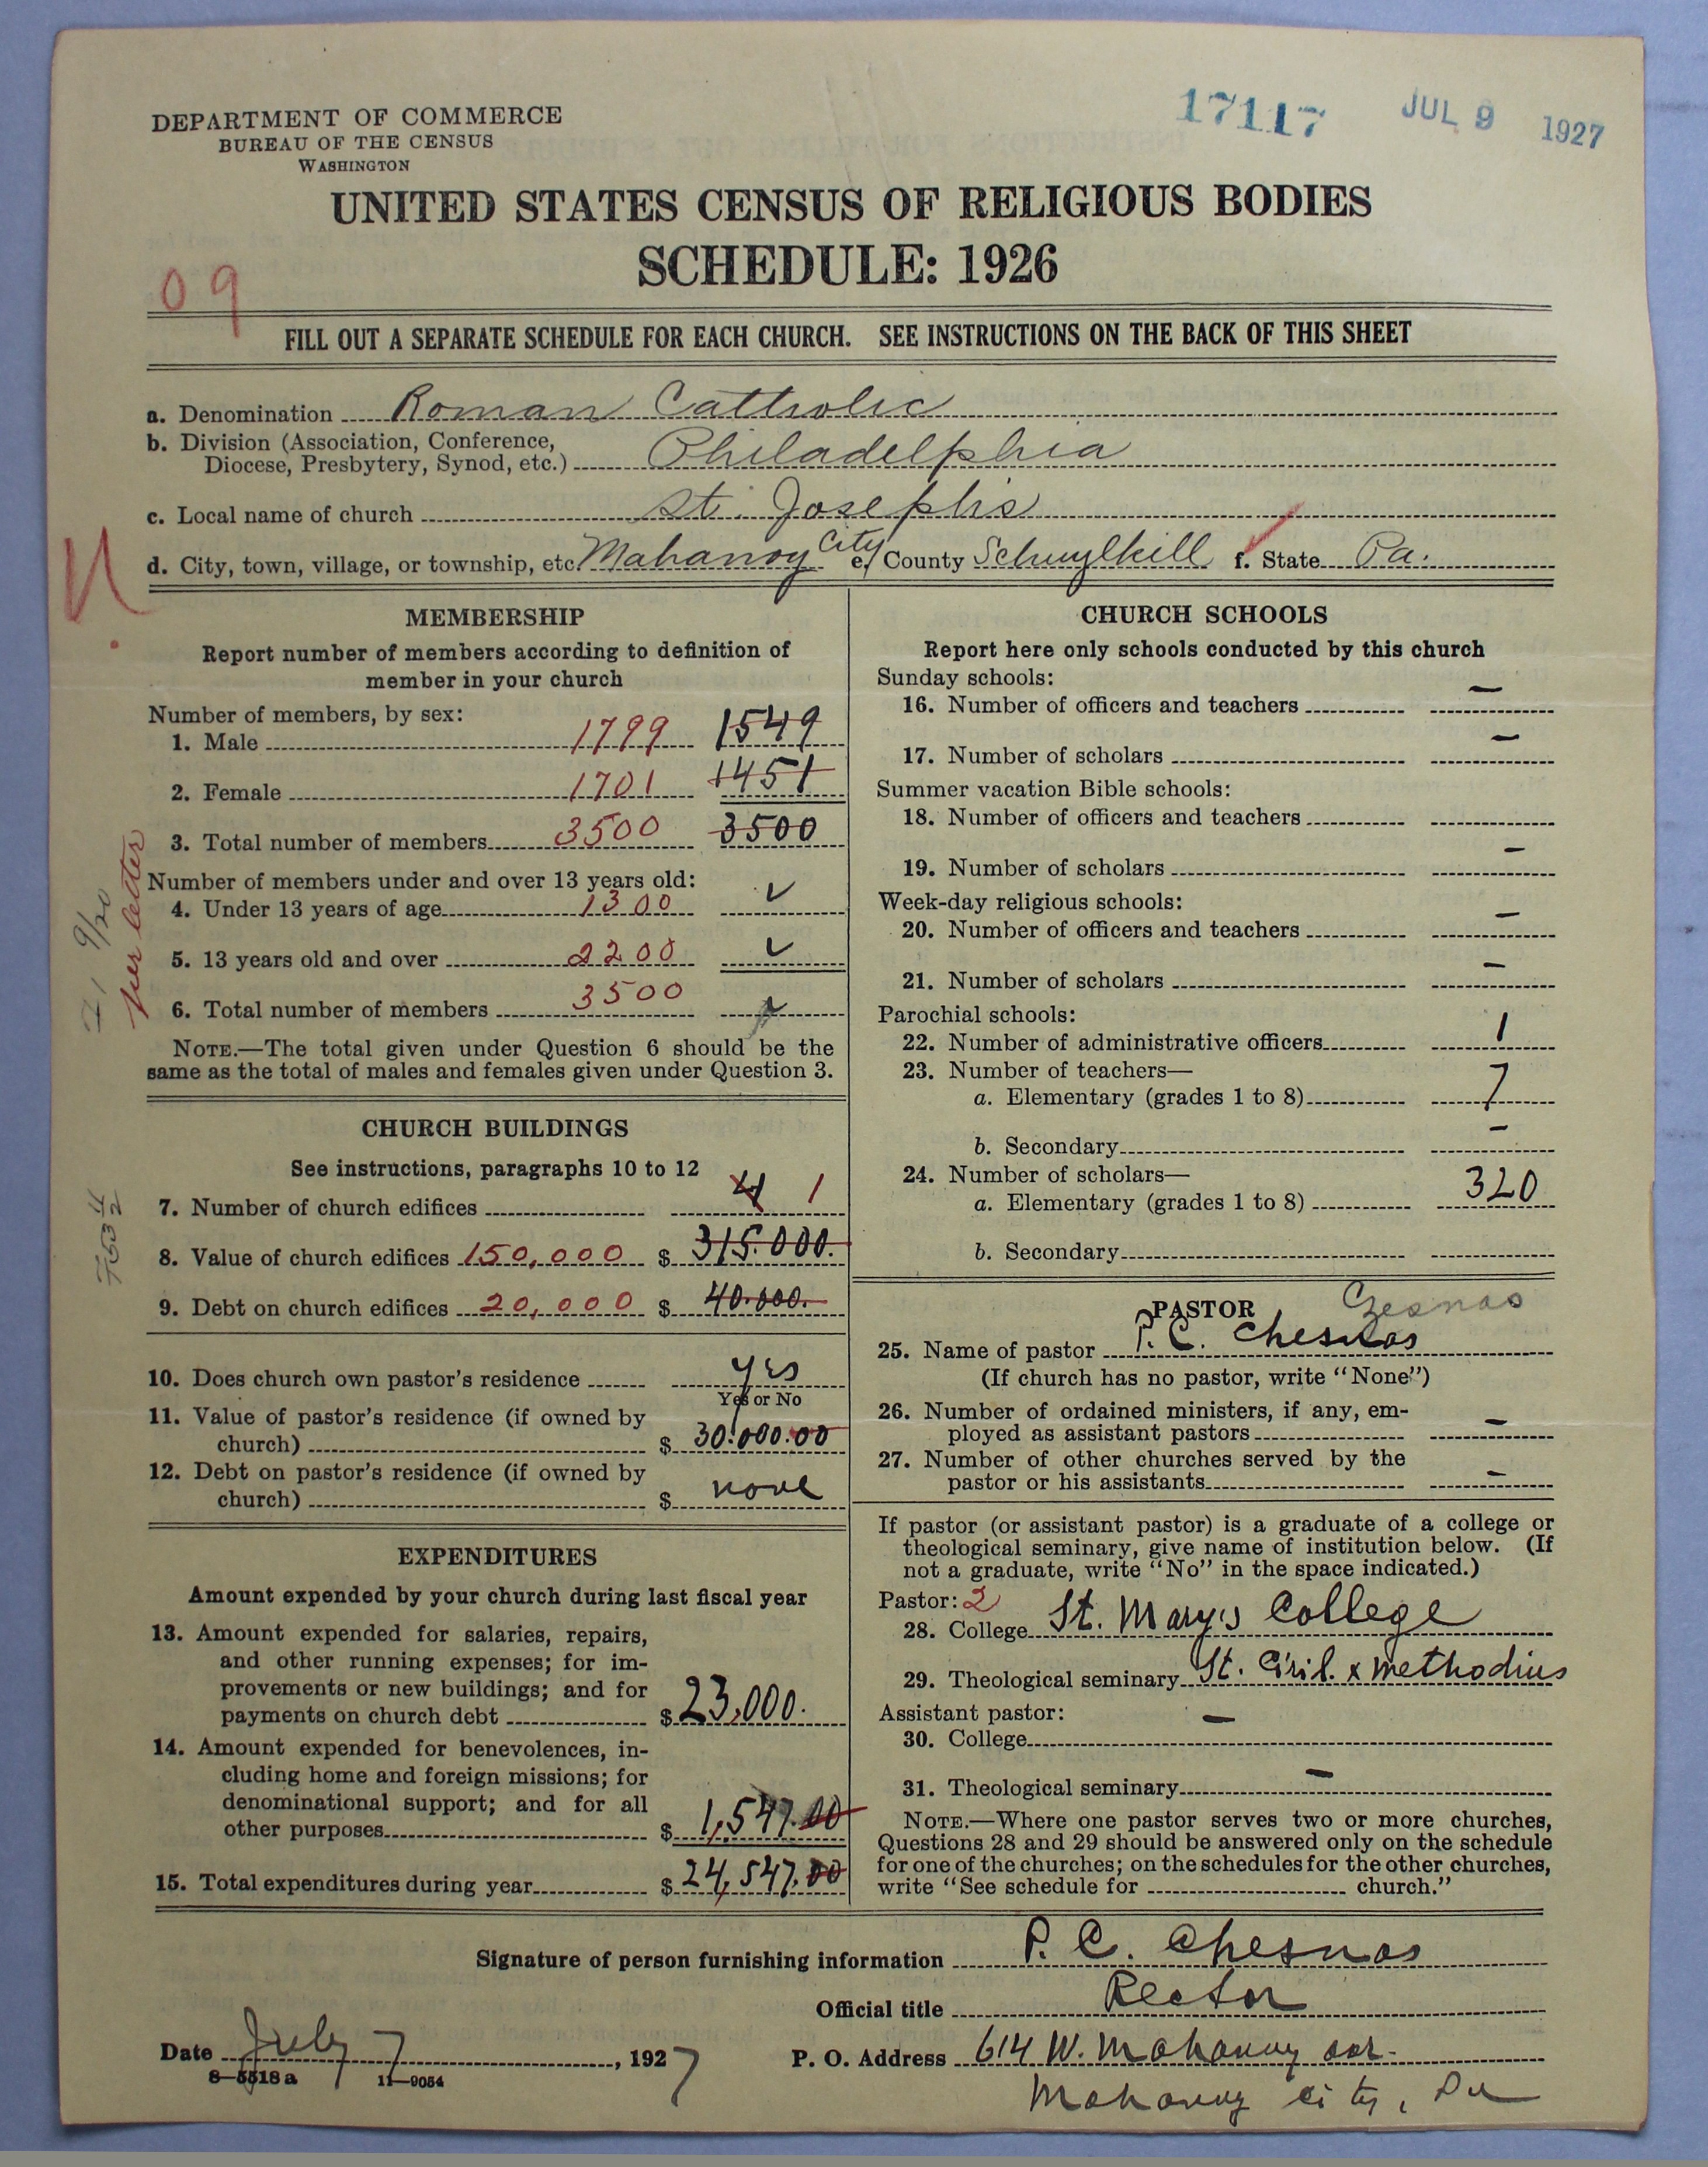 17117 JUL 9 1927
DEPARTMENT OF COMMERCE
BUREAU OF THE CENSUS
WASHINGTON
UNITED STATES CENSUS OF RELIGIOUS BODIES
SCHEDULE: 1926
09
FILL OUT A SEPARATE SCHEDULE FOR EACH CHURCH. SEE INSTRUCTIONS ON THE BACK OF THIS SHEET
a. Denomination Roman Catholic
b. Division (Association, Conference,
Diocese, Presbytery, Synod, etc.) Philadelphia
c. Local name of church St. Joseph's
d. City, town, village, or township, etc. Mahanoy City e. County Schuylkill f. State Pa.
MEMBERSHIP
Report number of members according to definition of
member in your church
Number of members, by sex:
1. Male 1799 1549
2. Female 1701 1451
3. Total number of members 3500 3500
Number of members under and over 13 years old:
4. Under 13 years of age 1300 ✓
5. 13 years old and over 2200 ✓
6. Total number of members 3500
9/20
per letter
NOTE.—The total given under Question 6 should be the
same as the total of males and females given under Question 3.
CHURCH BUILDINGS
See instructions, paragraphs 10 to 12
7. Number of church edifices 4 1
8. Value of church edifices 150,000 $ 315.000.
9. Debt on church edifices 20,000 $ 40.000.
10. Does church own pastor's residence yes
Yes or No
11. Value of pastor's residence (if owned by
church) $ 30.000.00
12. Debt on pastor's residence (if owned by
church) $ none
EXPENDITURES
Amount expended by your church during last fiscal year
13. Amount expended for salaries, repairs,
and other running expenses; for im-
provements or new buildings; and for
payments on church debt $ 23,000.
14. Amount expended for benevolences, in-
cluding home and foreign missions; for
denominational support; and for all
other purposes $ 1,547.00
15. Total expenditures during year $ 24,547.00
CHURCH SCHOOLS
Report here only schools conducted by this church
Sunday schools:
16. Number of officers and teachers –
17. Number of scholars –
Summer vacation Bible schools:
18. Number of officers and teachers
19. Number of scholars –
Week-day religious schools:
20. Number of officers and teachers –
21. Number of scholars –
Parochial schools:
22. Number of administrative officers 1
23. Number of teachers—
a. Elementary (grades 1 to 8) 7
b. Secondary –
24. Number of scholars—
a. Elementary (grades 1 to 8) 320
b. Secondary
PASTOR Czesnas
25. Name of pastor P. C. Chesnas
(If church has no pastor, write "None")
26. Number of ordained ministers, if any, em-
ployed as assistant pastors –
27. Number of other churches served by the
pastor or his assistants –
If pastor (or assistant pastor) is a graduate of a college or
theological seminary, give name of institution below. (If
not a graduate, write "No" in the space indicated.)
Pastor: 2
28. College St. Mary's College
29. Theological seminary St. Ciril. x Methodius
Assistant pastor:
30. College –
31. Theological seminary –
NOTE.—Where one pastor serves two or more churches,
Questions 28 and 29 should be answered only on the schedule
for one of the churches; on the schedules for the other churches,
write "See schedule for church."
Signature of person furnishing information P. C. Chesnas
Official title Rector
Date July 7, 1927 P. O. Address 614 W. Mahanoy
8—5518a 11—9054
Mahanoy City, Pa